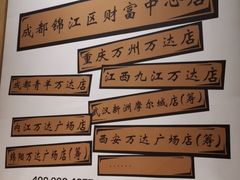 成都锦江区财富中心店
重庆万州万达店
成都青羊万达店
江西九江万达店
武汉新洲摩尔城店(筹)
内江万达广场店
西安万达广场店(筹)
绵阳万达广场店(筹)